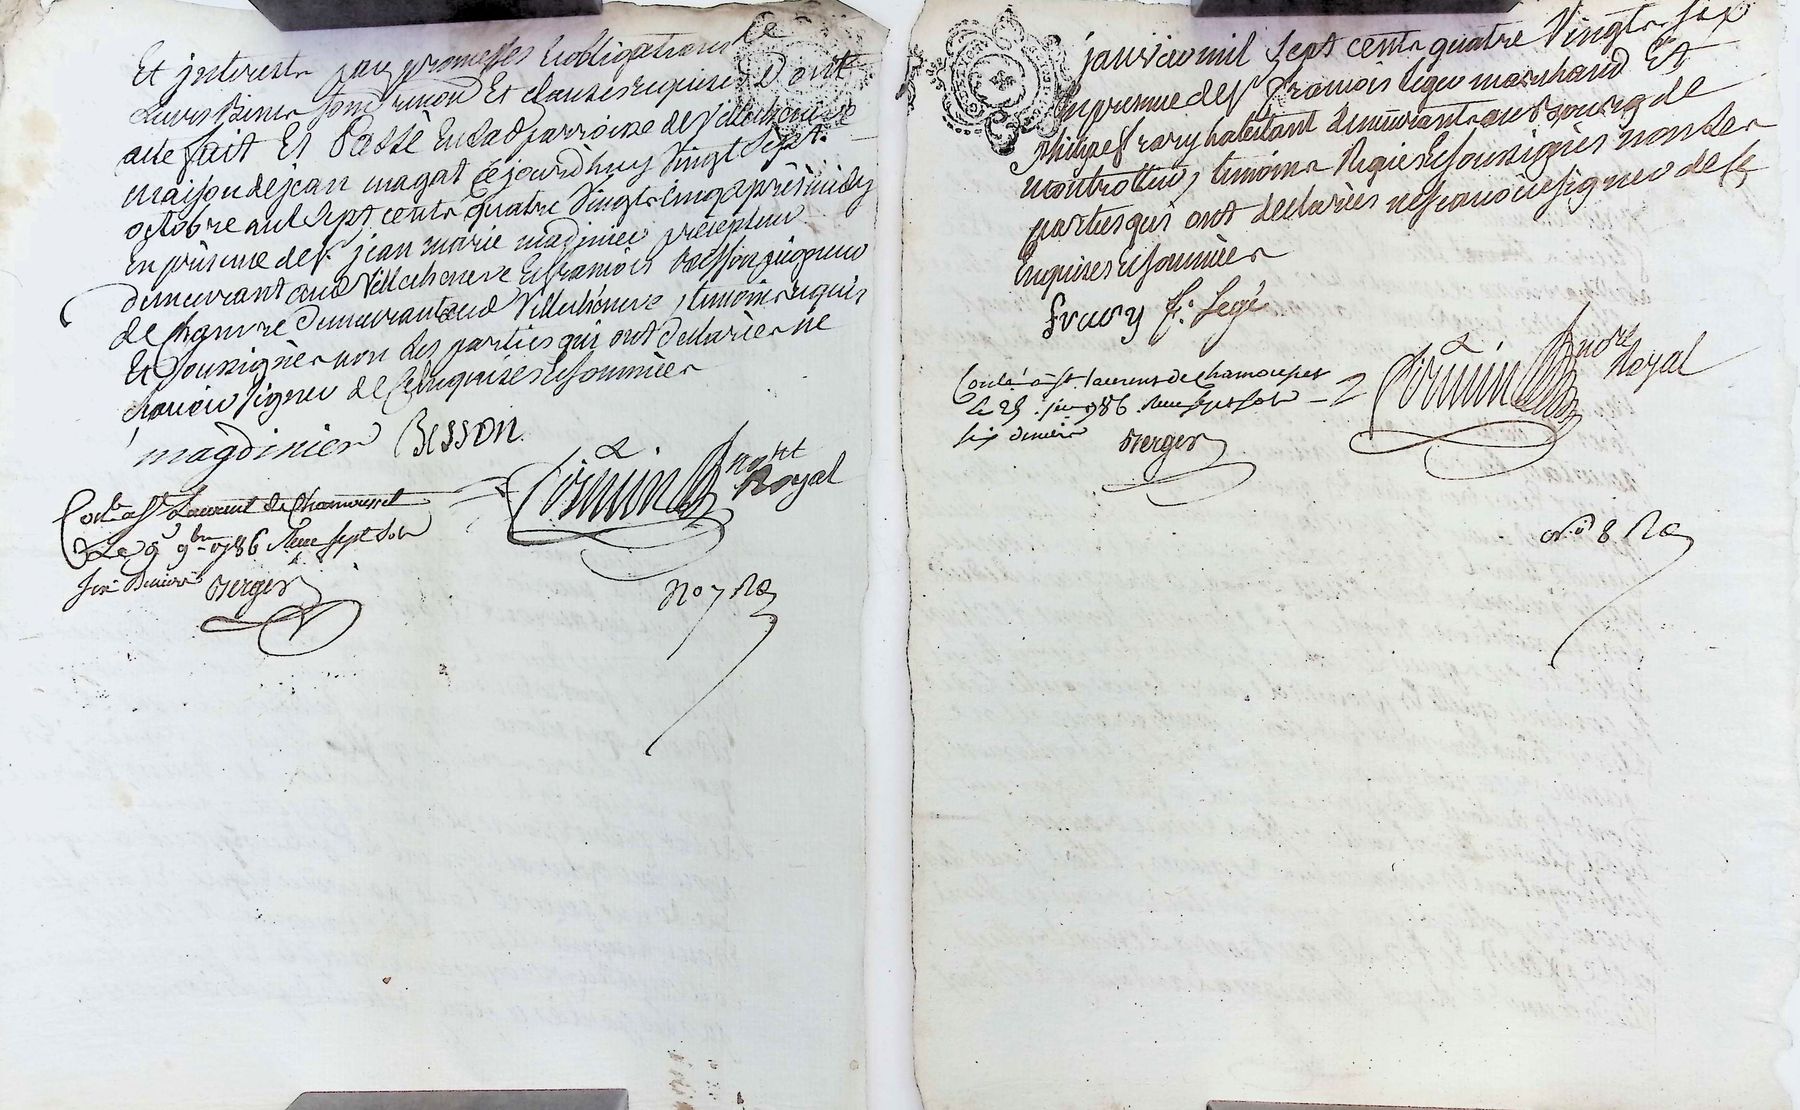 Et jnterests par promesses & obligations de
Leurs Biens soub. renon. Et clauses requises Dont
acte fait Et Passé En lad. parroisse de Villecheneve
maison de jean magat Cejourd'huy Vingt Sept.
octobre mil Sept cents quatre Vingts Cinq après midy
En présence de Sr. jean marie magdinier précepteur
demeurant aud. Villecheneve Et francois Besson peigneur
de Chanvre Demeurant aud. Villecheneve, temoins requis
Et Soussignés non les parties qui ont declarées ne
Scavoir Signer de Ce Enquises & Sommées
magdinier Besson
nore
Royal
Conlé a St. Laurent de Chamousset
Le 9 9bre 1786 Sept Sols
Six Deniers Berger
No 7 Re
janvier mil Sept cents quatre Vingts Six
En presence de Sr. francois leger marchand Et
Philipe frary habitant demeurants au Bourg de
montrottier, temoins Requis & Soussignés non les
parties qui ont declarées ne scavoir signer de Ce
Enquises & Sommées
frary f: Legé
nore
Royal
Conlé a St. Laurent de Chamousset
Le 25 1786 Sept Sols
Six deniers
Berger
No 8 Re